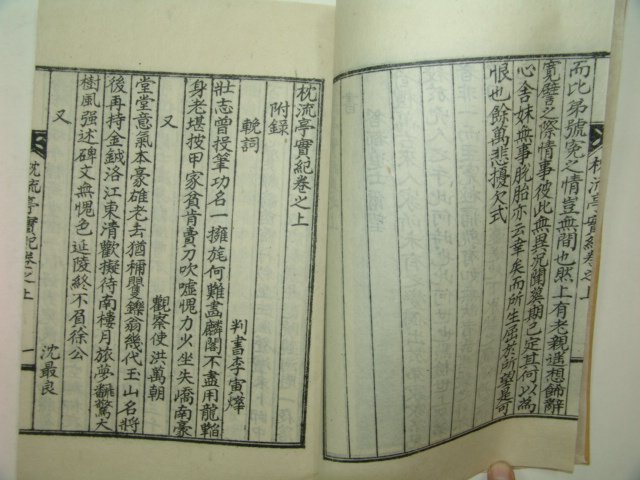 而比弟號寃之情豈無間也然上有老親遙想餙辭
寛譬之際情事彼此無異況聞葬期已定其何以為
心舍妹無事脫胎亦云幸矣而所生屈於所望是可
恨也餘萬悲擾欠式
枕流亭實紀卷之上
枕流亭實紀卷之上
附錄
輓詞
判書李寅燁
壯志曾投筆功名一擁旄何難畵麟閣不盡用龍韜
身老堪按甲家貧肯賣刀吹噓愧力火坐失嶠南豪
又
觀察使洪萬朝
堂堂意氣本豪雄老去猶稱矍鑠翁幾代玉山名將
後再持金鉞洛江東淸歡擬待南樓月旅夢飜驚大
樹風强述碑文無愧色延陵終不負徐公
又
沈最良
枕流亭實紀卷之上
一